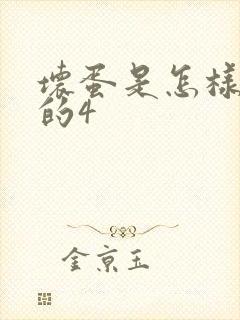 壞蛋是怎樣
的4
金京玉